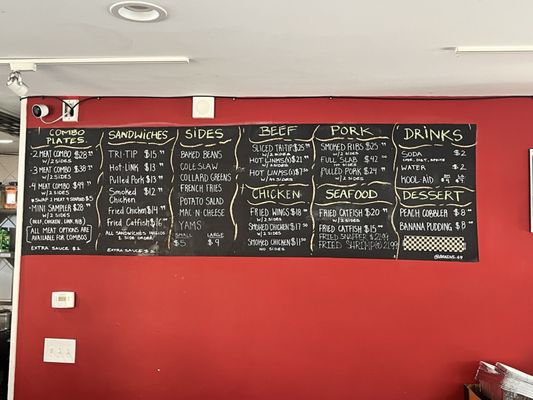 COMBO PLATES
2 MEAT COMBO $28
W/ 2 SIDES
3 MEAT COMBO $38
W/ 2 SIDES
4 MEAT COMBO $49
W/ 2 SIDES
MINI SAMPLER $28
W/ 2 SIDES
ALL MEAT OPTIONS
ARE AVAILABLE
FOR COMBO
EXTRA SAUCE $1
SANDWICHES
TRI-TIP $15
Hot-Link $13
Pulled Pork $13
Smoked Chicken $12
Fried Chicken $14
Fried Catfish $16
1 SIDE
EXTRA SAUCE
SIDES
BAKED BEANS
COLE SLAW
COLLARD GREENS
FRENCH FRIES
POTATO SALAD
MAC-N-CHEESE
YAMS
SMALL LARGE
$5 $9
BEEF
SLICED TRI TIP $25
W/ 2 SIDES
HOT LINKS $21
W/ 2 SIDES
HOT LINKS $7
NO SIDES
CHICKEN
FRIED WINGS $18
W/ 2 SIDES
SMOKED CHICKEN $17
W/ 2 SIDES
SMOKED CHICKEN $11
NO SIDES
PORK
SMOKED RIBS $25
W/ 2 SIDES
FULL SLAB $42
NO SIDES
PULLED PORK $24
W/ 2 SIDES
SEAFOOD
FRIED CATFISH $20
W/ 2 SIDES
FRIED CATFISH $15
FRIED SNAPPER $21.99
FRIED SHRIMP
DRINKS
SODA $2
WATER $2
KOOL-AID
DESSERT
PEACH COBBLER $8
BANANA PUDDING $8